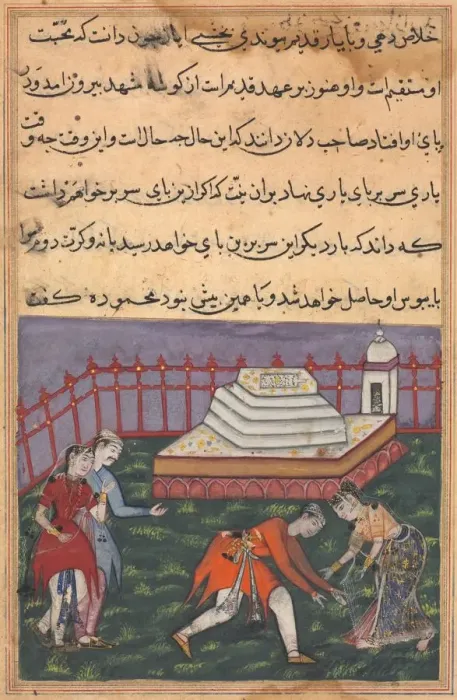 خلاص دهی و با یار قدیم پیوندی ایاز چون دانت که محبت
او مستقیم است و او هنوز بر عهد قدیم است از کوشه مشهد بیرون امد و در
پای او افتاد صاحب دلان دانند که این حال چه حال است و این وقت چه وقت
یاری سر بر پای یاری نهاد بران نیت که اکر ازین پای سر بر خواهم داشت
که داند که بار دیکر این سر برین پای خواهد رسید یا نه و کرت دوم مرا
پایبوس او حاصل خواهد شد و یا همین بیش نبود محموده کفت